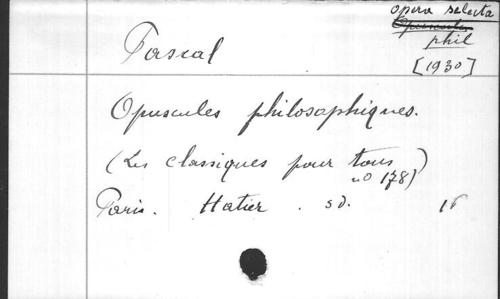 opera selecta
Opuscules
phil
[1930]
Pascal
Opuscules philosophiques.
(Les classiques pour tous
no 178)
Paris. Hatier. sd. 16